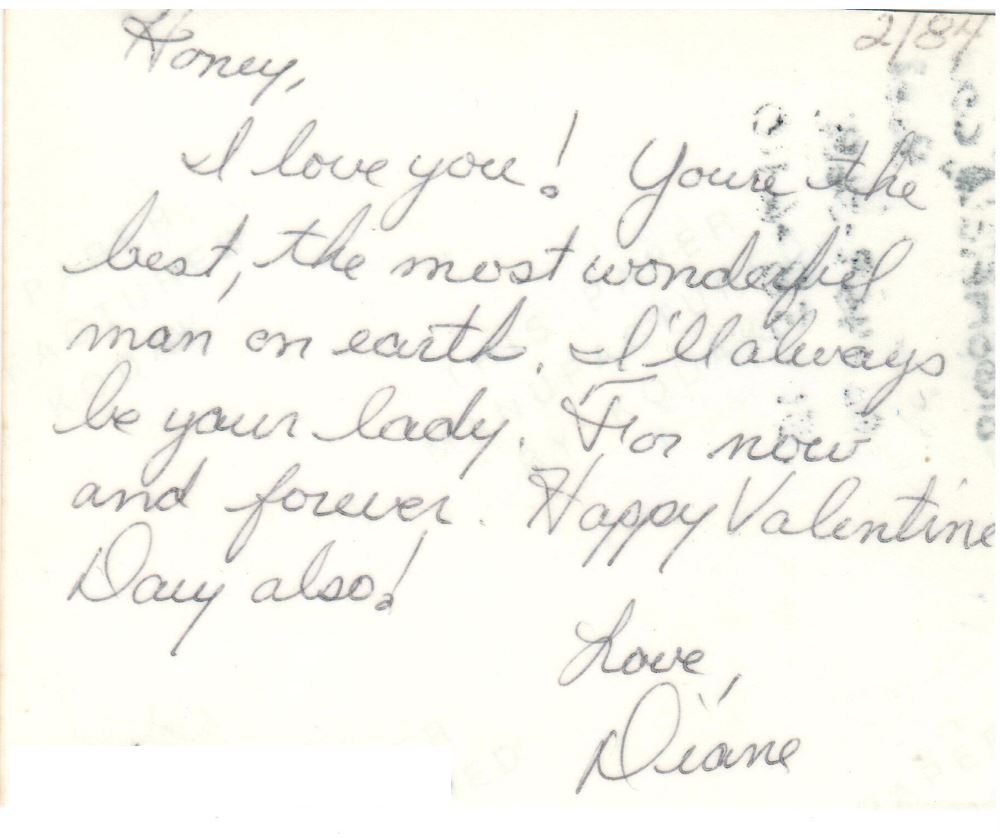 2/84
Honey,
I love you! You're the
best, the most wonderful
man on earth. I'll always
be your lady. For now
and forever. Happy Valentine
Day also!
Love,
Diane